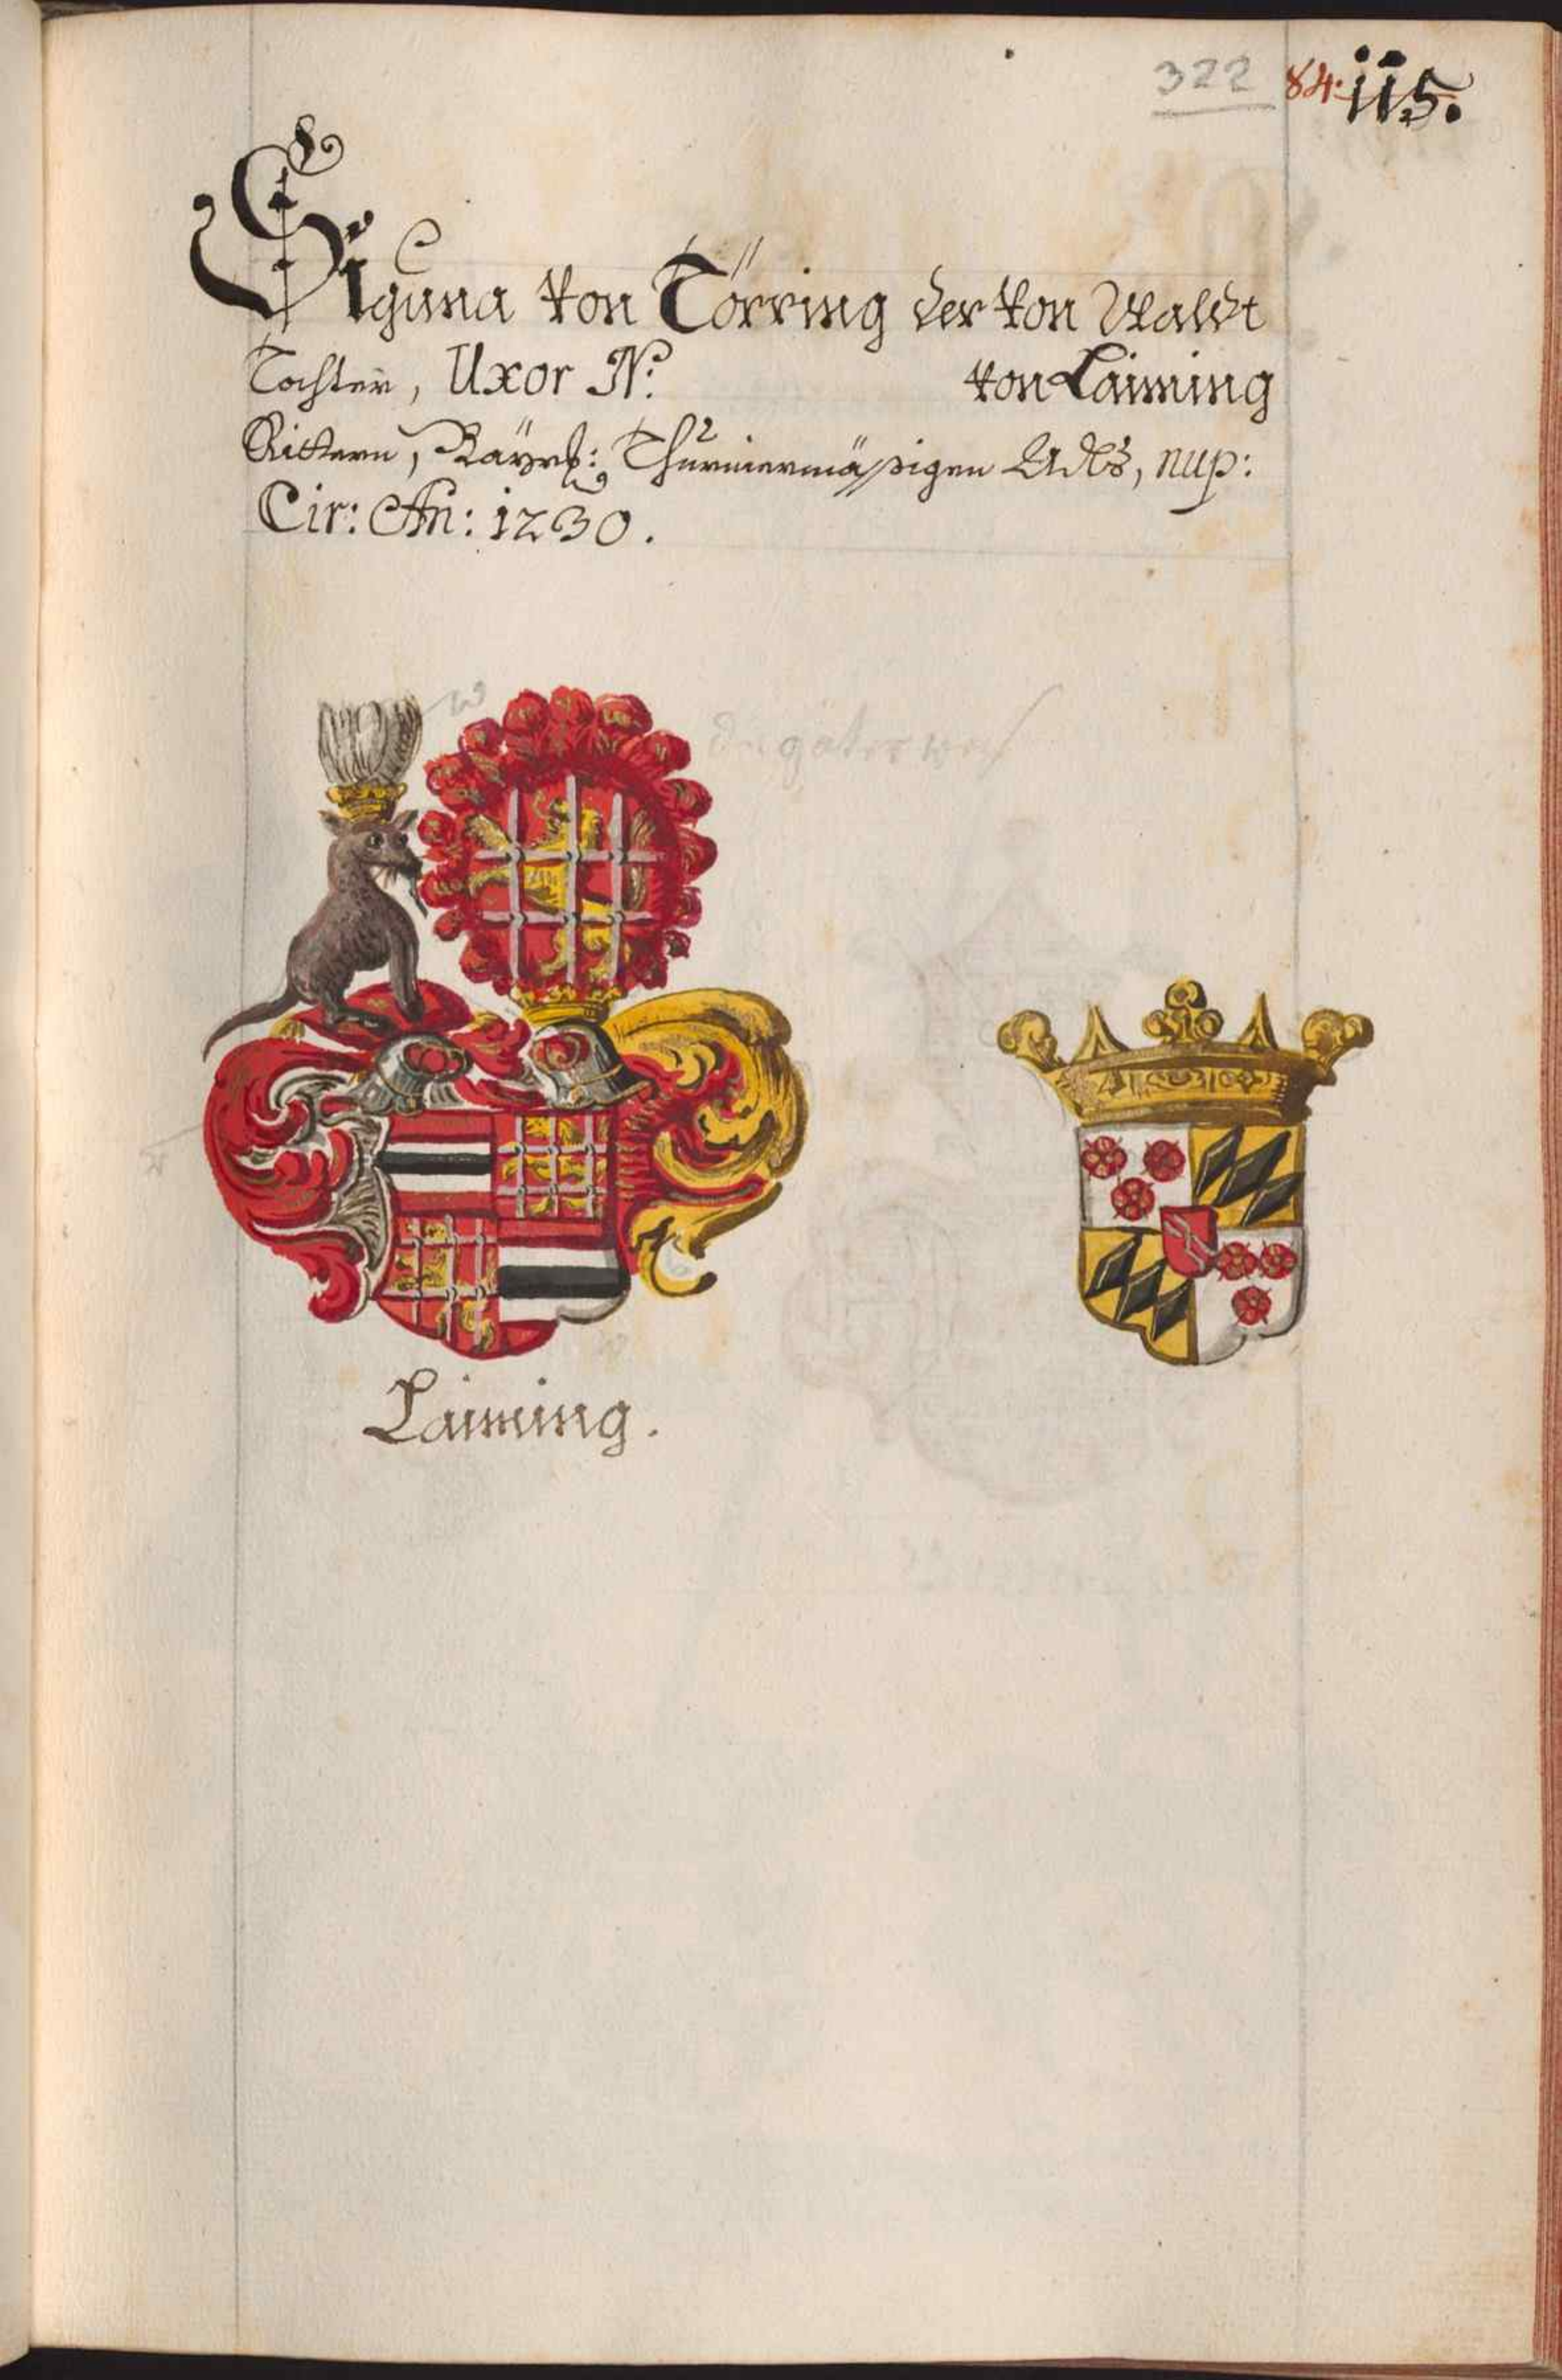 322 84. 115.
Siguna von Törring der von Waldt
Tochter, Uxor N: von Laiming
Rittern, Bäyrl: Thurniermässigen Adls, nup:
Cir: An: 1230.
w
Laiming.